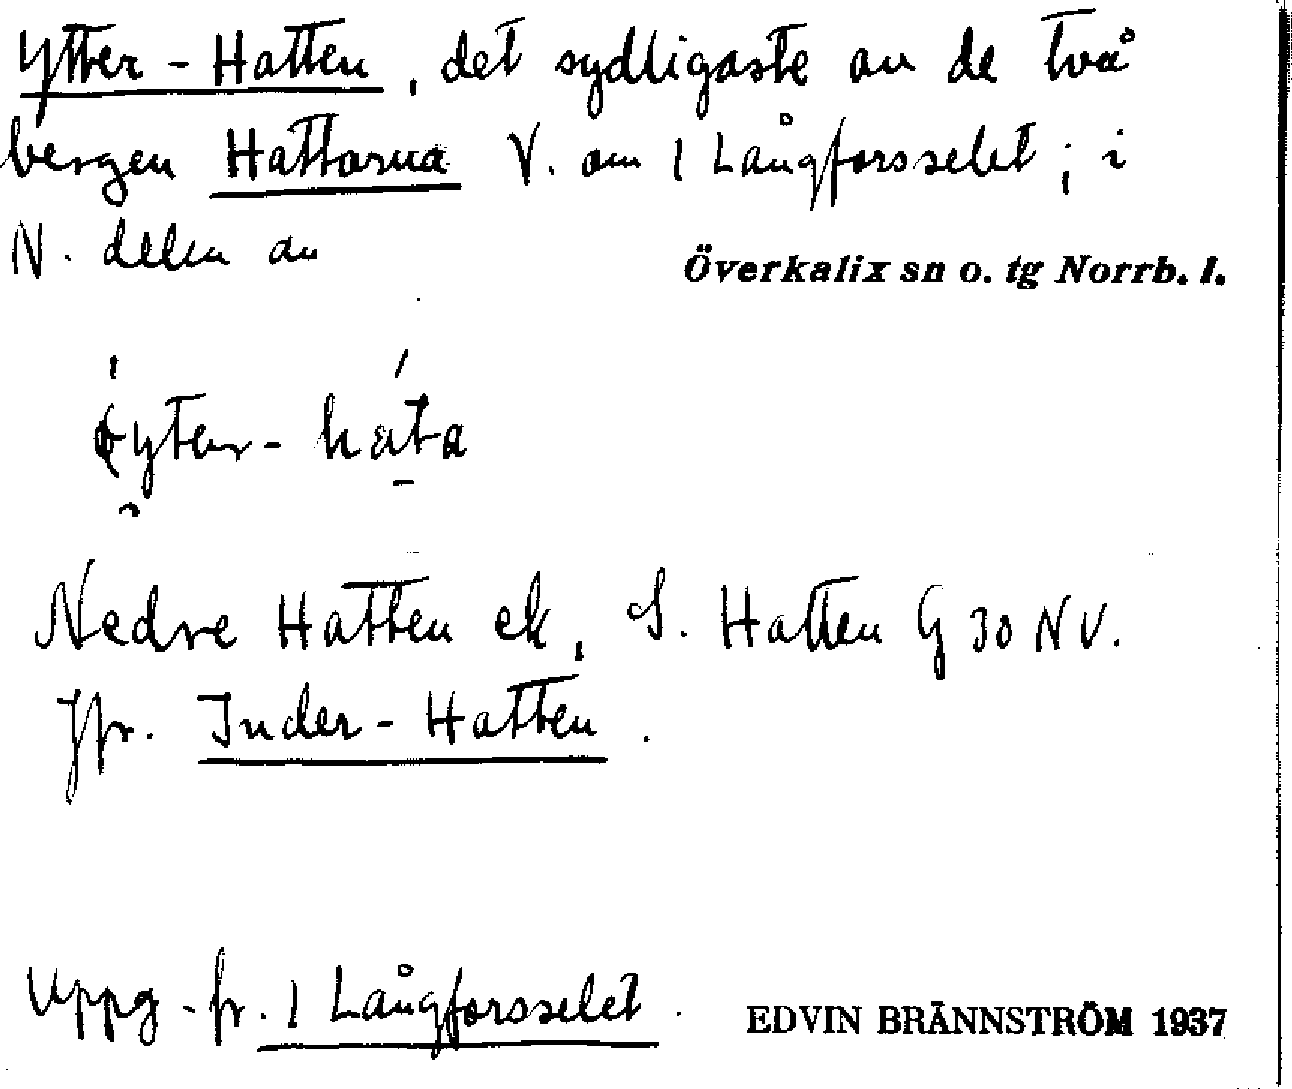 Ytter-Hatten, det sydligaste av de två
bergen Hattarna V. om 1 Långforsselet; i
N. delen av Överkalix sn o. tg Norrb. l.
yter-hata
Nedre Hatten ek, S. Hatten G 30 NV.
Jfr. Inder-Hatten.
Uppg. fr. 1 Långforsselet. EDVIN BRÄNNSTRÖM 1937